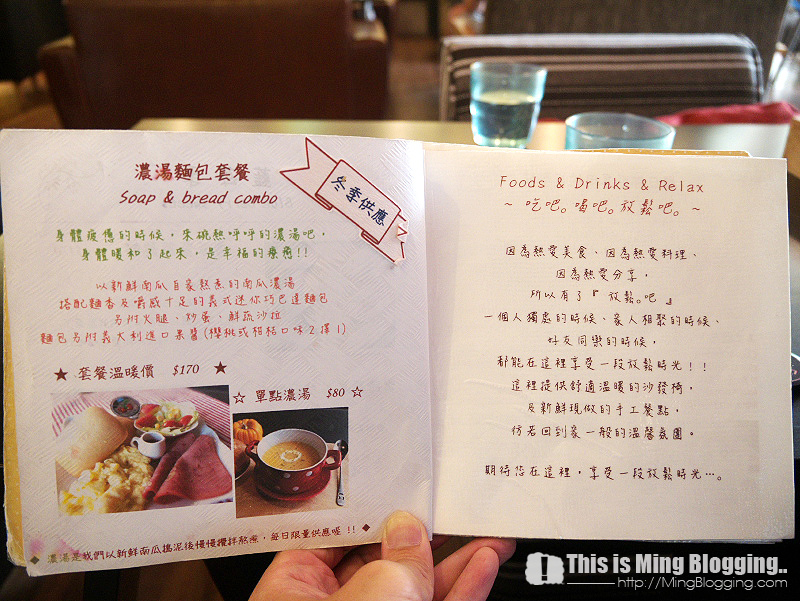 濃湯麵包套餐
Soap & bread combo
冬季供應
身體疲憊的時候，來碗熱呼呼的濃湯吧，
身體暖和了起來，是幸福的療癒!!
以新鮮南瓜自家熬煮的南瓜濃湯
搭配麵香及嚼感十足的義式迷你巧巴達麵包
另附火腿、炒蛋、鮮蔬沙拉
麵包另附義大利進口果醬(櫻桃或柑桔口味2擇1)
★ 套餐溫暖價 $170 ★
☆ 單點濃湯 $80 ☆
◆ 濃湯是我們以新鮮南瓜搗泥後慢慢攪拌熬煮，每日限量供應喔!! ◆
Foods & Drinks & Relax
~ 吃吧。喝吧。放鬆吧。~
因為熱愛美食、因為熱愛料理、
因為熱愛分享，
所以有了『 放鬆。吧 』
一個人獨處的時候、家人相聚的時候、
好友同樂的時候，
都能在這裡享受一段放鬆時光！！
這裡提供舒適溫暖的沙發椅，
及新鮮現做的手工餐點，
仿若回到家一般的溫馨氛圍。
期待您在這裡，享受一段放鬆時光…。
This is Ming Blogging..
http://MingBlogging.com